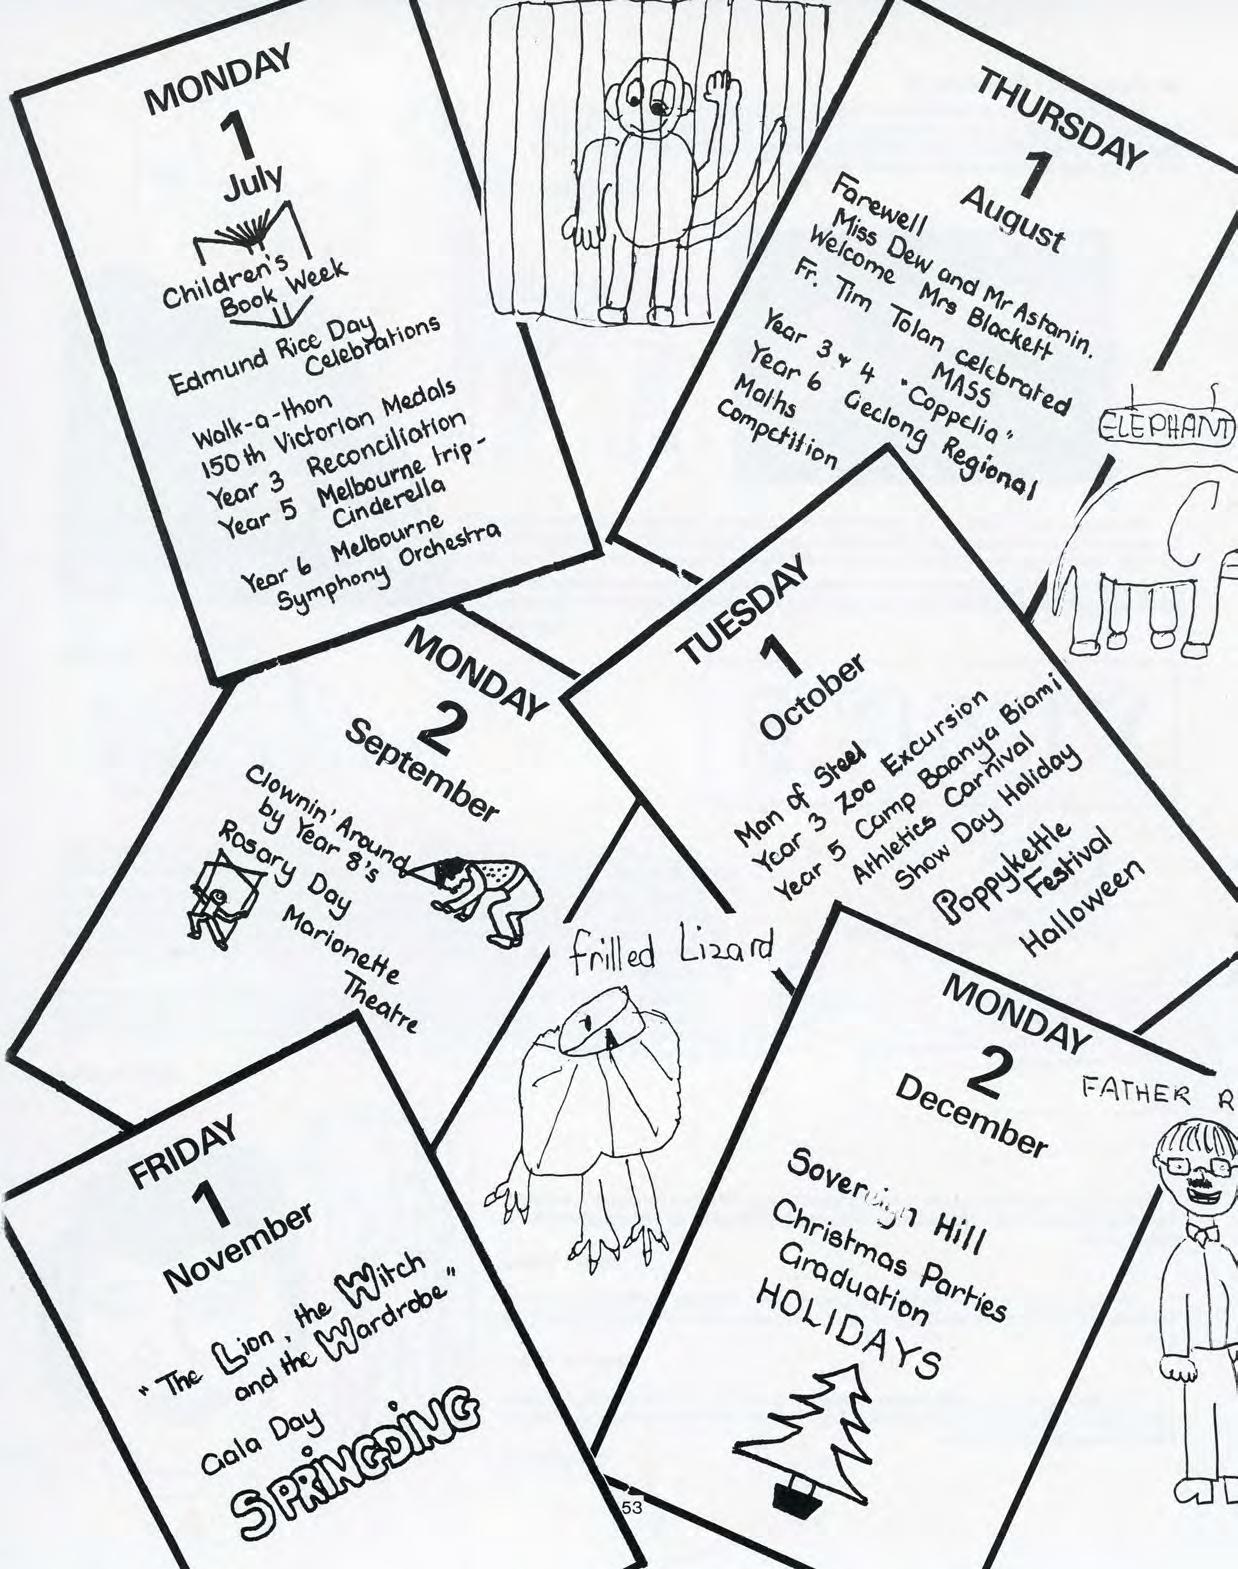 MONDAY
1
July
Children's
Book Week
Edmund Rice Day
Celebrations
Walk-a-thon
150th Victorian Medals
Year 3 Reconciliation
Year 5 Melbourne trip -
Cinderella
Year 6 Melbourne
Symphony Orchestra
THURSDAY
1
August
Farewell
Miss Dew and Mr Astanin.
Welcome Mrs Blackett
Fr. Tim Tolan celebrated
MASS
Year 3 & 4 "Coppelia"
Year 6 Geelong Regional
Maths
Competition
ELEPHANT
MONDAY
2
September
Clownin' Around
by Year 8's
Rosary Day
Marionette
Theatre
TUESDAY
1
October
Man of Steel
Year 3 Zoo Excursion
Year 5 Camp Baanya Biami
Athletics Carnival
Show Day Holiday
Poppykettle
Festival
Halloween
frilled Lizard
FRIDAY
1
November
"The Lion, the Witch
and the Wardrobe"
Gala Day
SPRINGDING
MONDAY
2
December
Sovereign Hill
Christmas Parties
Graduation
HOLIDAYS
FATHER R
53